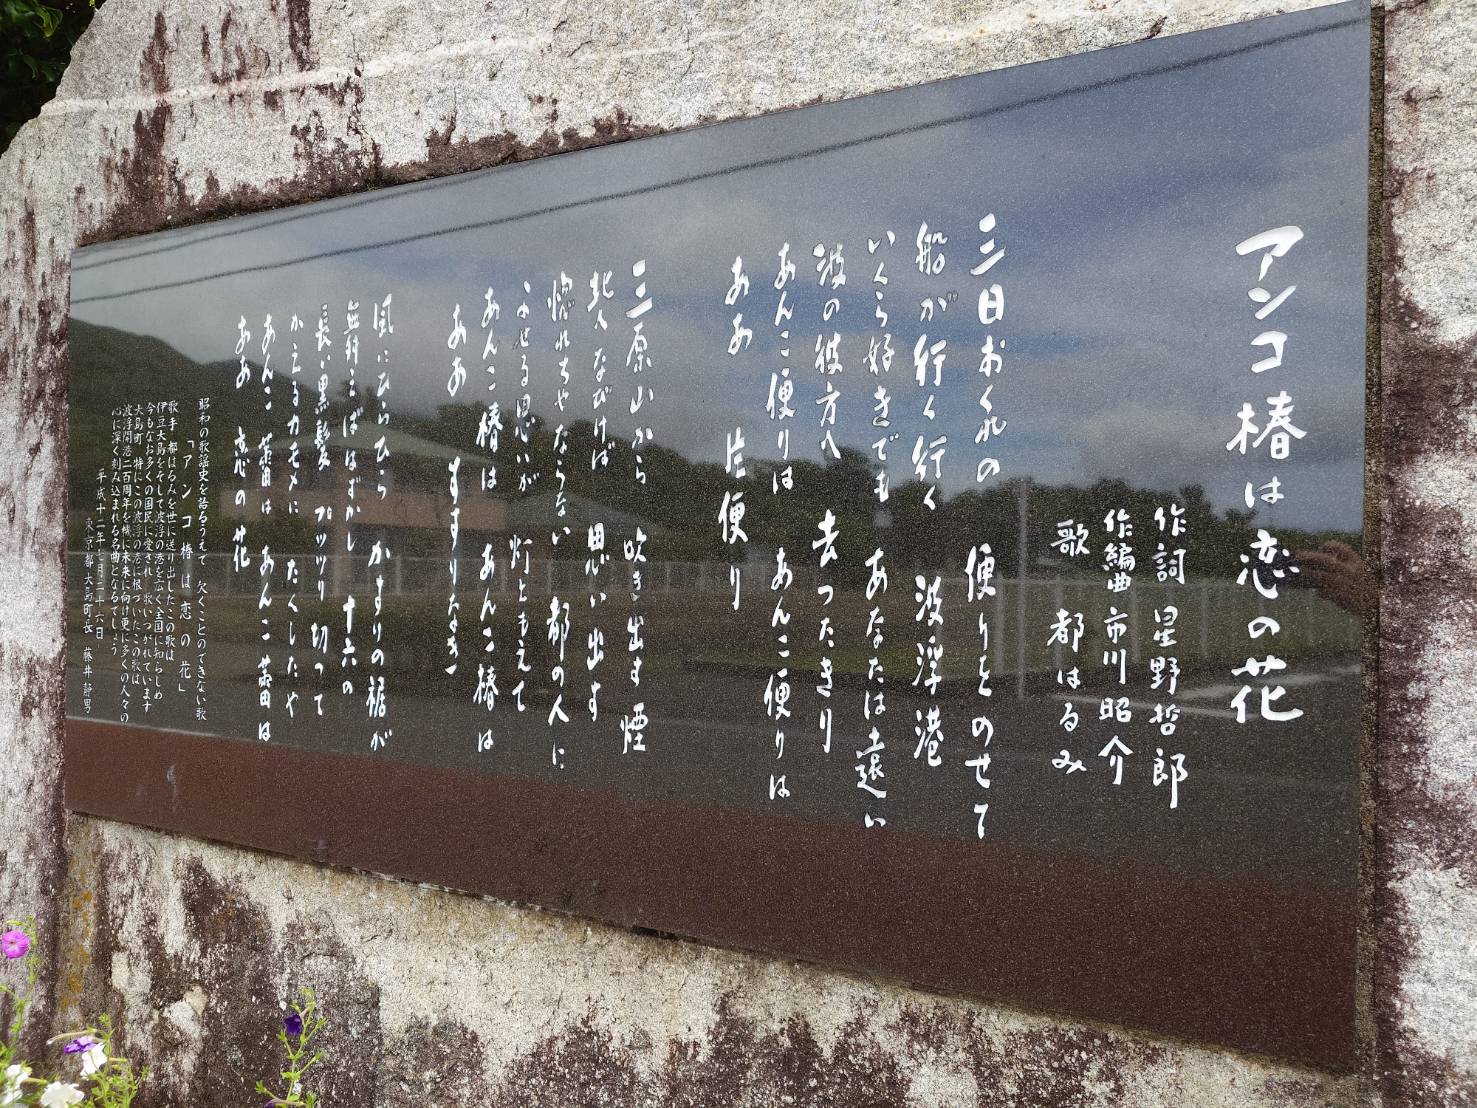 アンコ椿は恋の花
作詞 星野哲郎
作編曲 市川昭介
歌 都はるみ
三日おくれの 便りをのせて
船が行く行く 波浮港
いくら好きでも あなたは遠い
波の彼方へ 去ったきり
あんこ便りは あんこ便りは
ああ 片便り
三原山から 吹き出す煙
北へなびけば 思い出す
惚れちゃならない 都の人に
よせる思いが 灯ともえて
あんこ椿は あんこ椿は
ああ すすりなき
風にひらひら かすりの裾が
舞えばはずかし 十六の
長い黒髪 プッツリ切って
かえるカモメに たくしたや
あんこ蕾は あんこ蕾は
ああ 恋の花
昭和の歌謡史を語るうえで 欠くことのできない歌
「アンコ椿は恋の花」
歌手 都はるみを世に送り出したこの歌は
伊豆大島をそして波浮の港を広く全国に知らしめ
今もなお多くの国民に愛され 歌いつがれています
大島町 特にこの波浮の港に根づいたこの歌は
波浮開港二百周年を機に未来に向け更に多くの人々の
心に深く刻み込まれる名曲となるでしょう
平成十二年七月二十六日
東京都大島町長 藤井静男